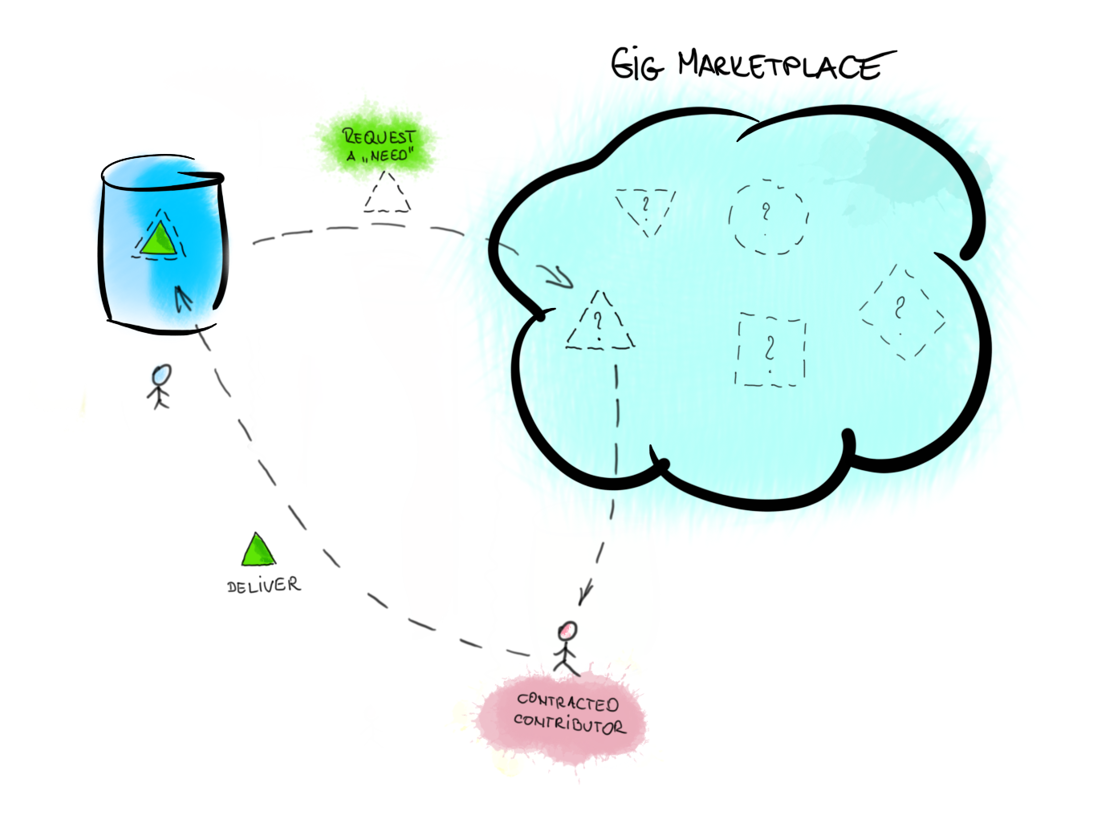 GiG MARKETPLACE
REQUEST
A „NEED"
?
?
?
?
?
DELiVER
CONTRACTED
CONTRiBUTOR